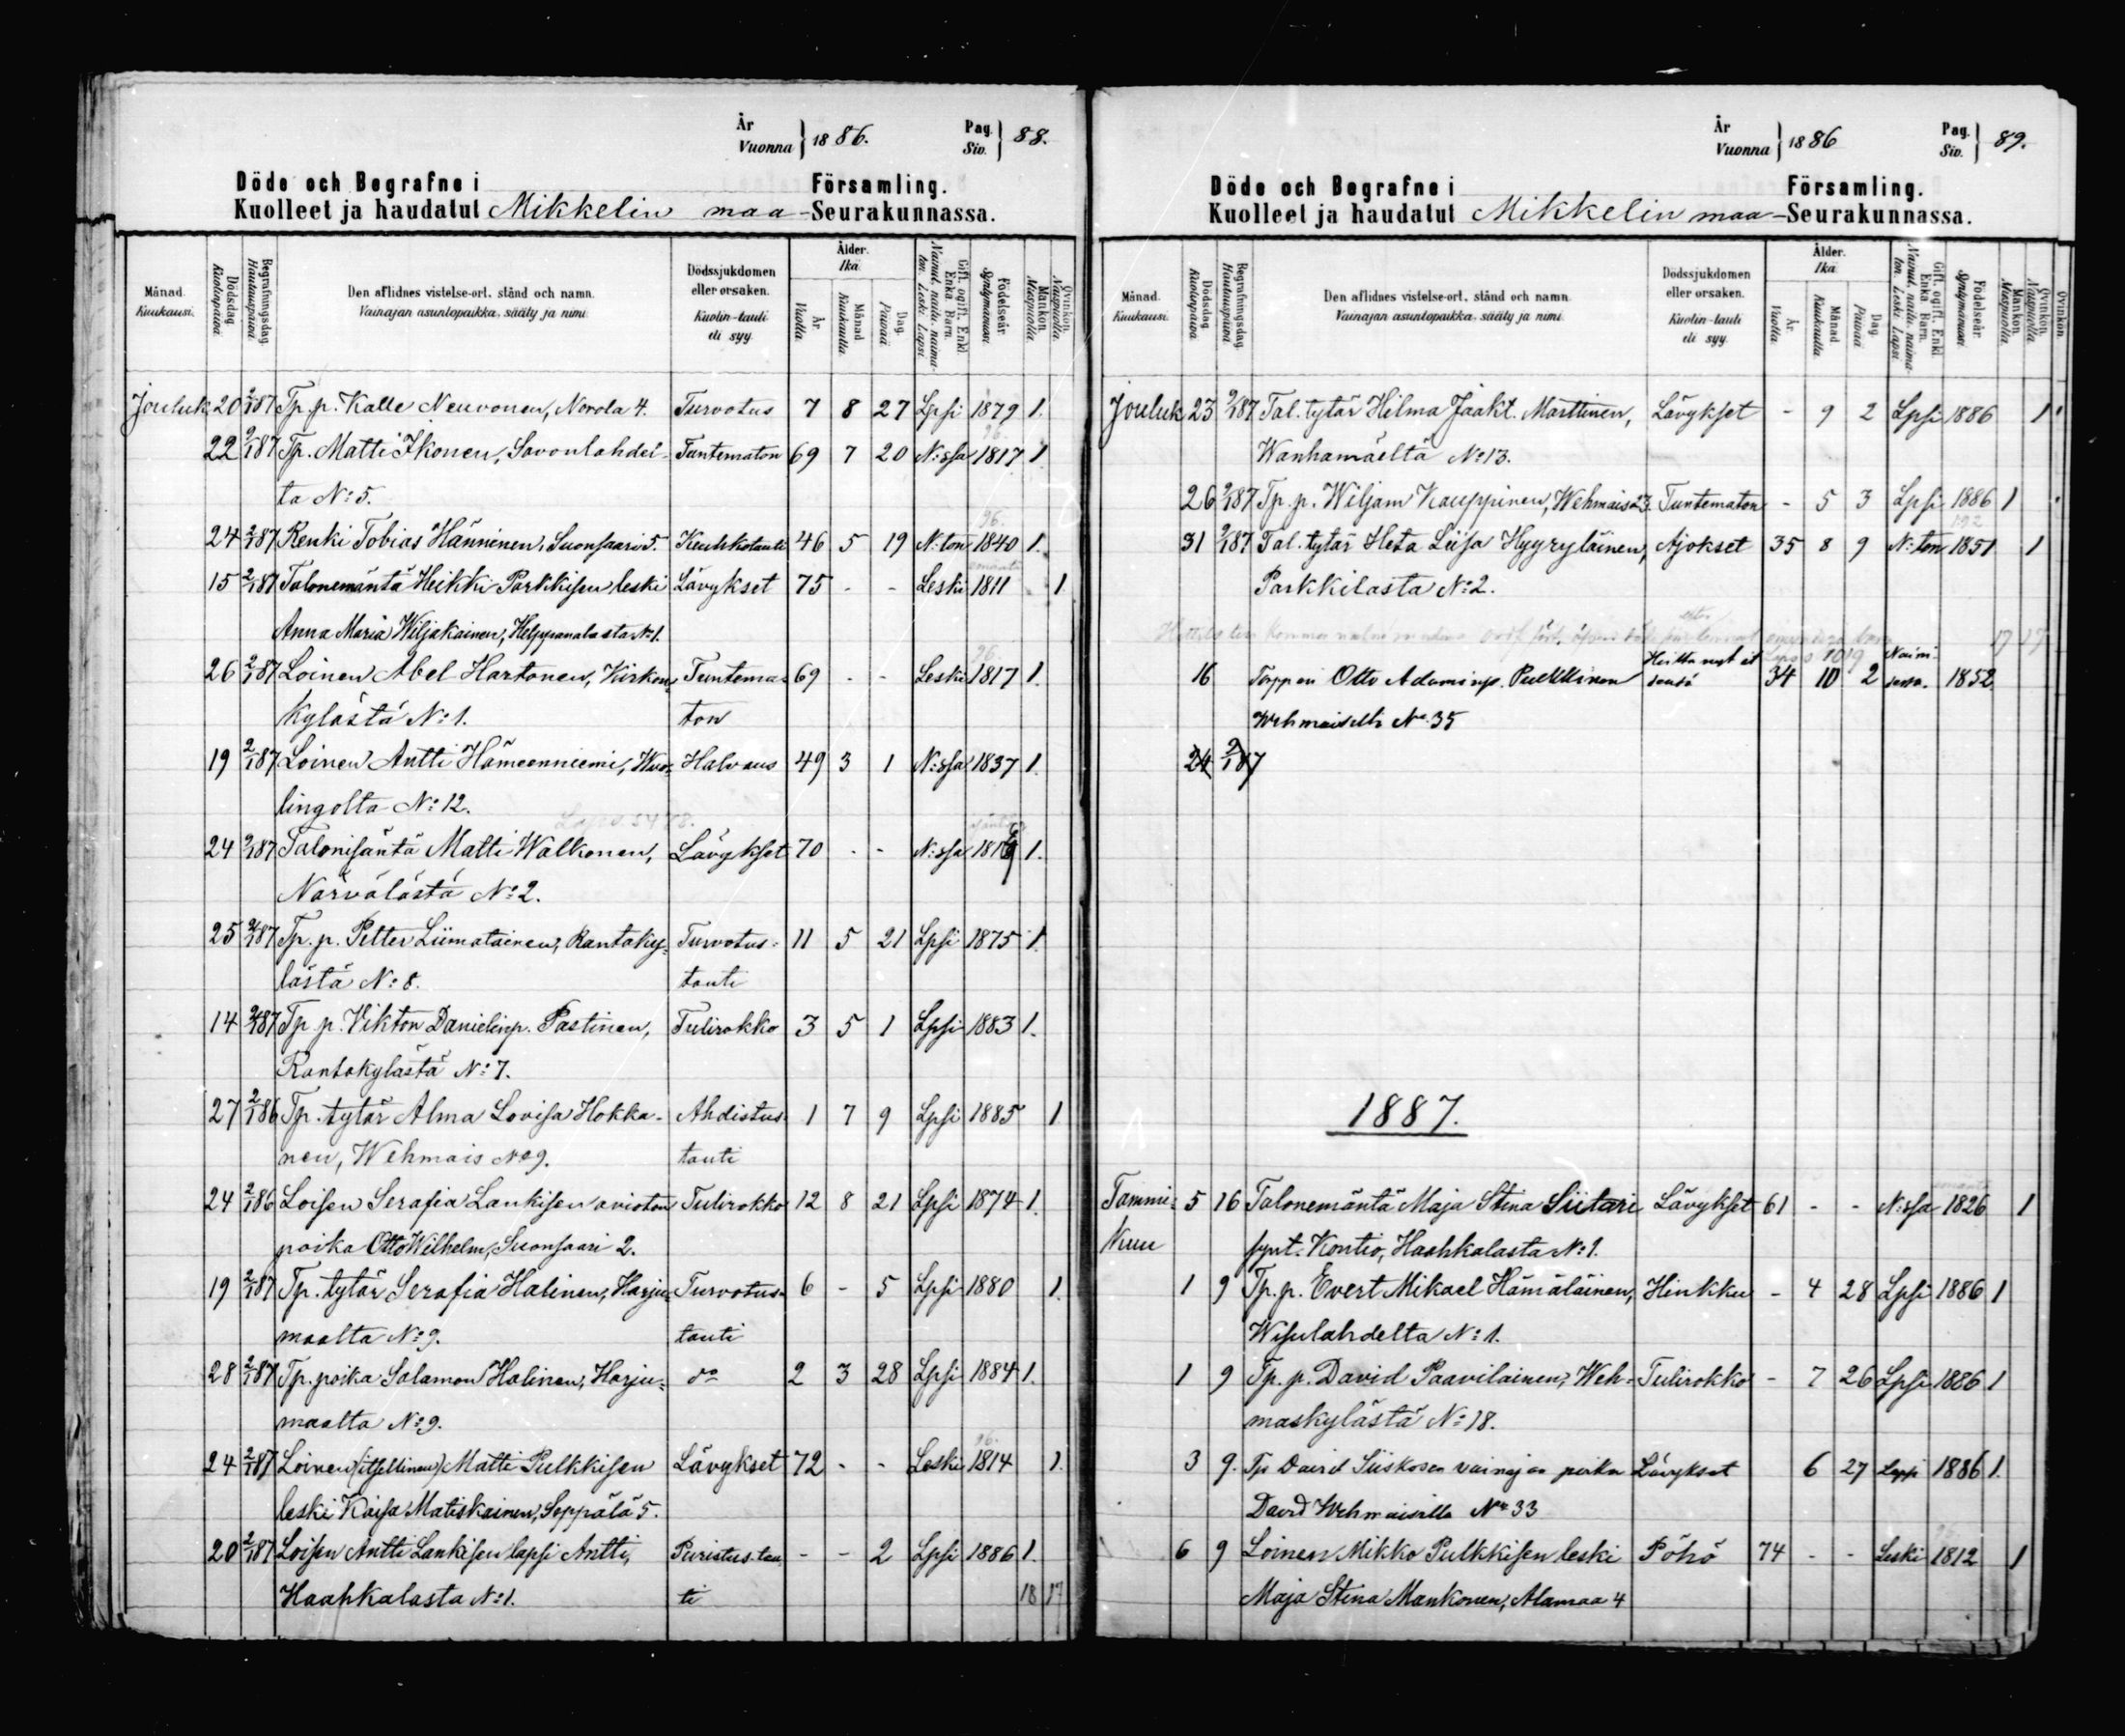 År
Vuonna } 1886.
Pag.
Siv. } 88.
Döde och Begrafne i Församling.
Kuolleet ja haudatut Mikkelin maa-Seurakunnassa.
Månad.
Kuukausi.
Dödsdag.
Kuolinpäivä.
Begrafningsdag.
Hautauspäivä.
Den aflidnes vistelse-ort, stånd och namn.
Vainajan asuntopaikka, sääty ja nimi.
Dödssjukdomen
eller orsaken.
Kuolin-tauti
eli syy.
Ålder.
Ikä.
År.
Vuotta.
Månad.
Kuukautta.
Dag.
Päivää.
Gift, ogift. Enkl.
Enka. Barn.
Nainut, naim. naima-
ton. Leski. Lapsi.
Födelseår.
Syntymävuosi.
Mankön.
Miespuolia.
Qvinkön.
Naispuolia.
Jouluk. 20 2/1 87 Tp. p. Kalle Neuvonen, Norola 4. Turvotus 7 8 27 Lpsi 1879 1.
22 2/1 87 Tp. Matti Ikonen, Savonlahdel- Tuntematon 69 7 20 N:ssa 1817 1
ta No: 5.
24 2/1 87 Renki Tobias Hänninen, Suonsaari 5. Keuhkotauti 46 5 19 N:ton 1840 1.
15 2/1 87 Talonemäntä Heikki Parkkisen leski Lävykset 75 - - Leski 1811 1.
Anna Maria Wiljakainen, Helppanalasta No 1.
26 2/1 87 Loinen Abel Hartonen, Kirkon- Tuntema- 69 - - Leski 1817 1.
kylästä No: 1. ton
19 2/1 87 Loinen Antti Hämeenniemi, Wuo- Halvaus 49 3 1 N:ssa 1837 1.
lingolta No: 12.
24 2/1 87 Talonisäntä Matti Walkonen, Lävykset 70 - - N:ssa 1816 1.
Närvälästä No: 2.
25 2/1 87 Tp. p. Petter Liimatainen, Rantaky- Turvotus- 11 5 21 Lpsi 1875 1.
lästä No: 8. tauti
14 2/1 87 Tp. p. Viktor Danielinp. Pastinen, Tulirokko 3 5 1 Lpsi 1883 1.
Rantakylästä No: 7.
27 2/1 86 Tp. tytär Alma Lovisa Hokka- Ahdistus- 1 7 9 Lpsi 1885 1
nen, Wehmais No 9. tauti
24 2/1 86 Loisen Serafia Lankisen avioton Tulirokko 12 8 21 Lpsi 1874 1.
poika Otto Wilhelm, Suonsaari 2.
19 2/1 87 Tp. tytär Serafia Halinen, Harju- Turvotus- 6 - 5 Lpsi 1880 1.
maalta No: 9. tauti
28 2/1 87 Tp. poika Salamon Halinen, Harju- do 2 3 28 Lpsi 1884 1.
maalta No: 9.
24 2/1 87 Loinen (itsellinen) Matti Pulkkisen Lävykset 72 - - Leski 1814 1.
leski Kaisa Matiskainen, Seppälä 5.
20 2/1 87 Loisen Antti Lankisen lapsi Antti, Puristus-tau- - - 2 Lpsi 1886 1.
Haahkalasta No: 1. ti 18 17
År
Vuonna } 1886
Pag.
Siv. } 89.
Döde och Begrafne i Församling.
Kuolleet ja haudatut Mikkelin maa-Seurakunnassa.
Månad.
Kuukausi.
Dödsdag.
Kuolinpäivä.
Begrafningsdag.
Hautauspäivä.
Den aflidnes vistelse-ort, stånd och namn.
Vainajan asuntopaikka, sääty ja nimi.
Dödssjukdomen
eller orsaken.
Kuolin-tauti
eli syy.
Ålder.
Ikä.
År.
Vuotta.
Månad.
Kuukautta.
Dag.
Päivää.
Gift, ogift. Enkl.
Enka. Barn.
Nainut, naim. naima-
ton. Leski. Lapsi.
Födelseår.
Syntymävuosi.
Mankön.
Miespuolia.
Qvinkön.
Naispuolia.
Jouluk 23 2/1 87 Tal. tytär Hilma Jaakt. Marttinen, Lävykset - 9 2 Lpsi 1886 1
Wanhamäeltä No: 13.
26 2/1 87 Tp. p. Wiljam Kauppinen, Wehmais 23. Tuntematon - 5 3 Lpsi 1886 1
31 2/1 87 Tal. tytär Heta Liisa Hyyryläinen, Ajokset 35 8 9 N:ton 1851 1
Parkkilasta No: 2.
17 17
16 Torppari Otto Adaminp. Pulkkinen 34 10 2 1852
Wehmaiselta No 35
24 2/1 87
1887.
Tammi- 5 16 Talonemäntä Maja Stina Siitari Lävykset 61 - - N:ssa 1826 1
kuu synt. Kontio, Haahkalasta No: 1.
1 9 Tp. p. Evert Mikael Hämäläinen, Hinkku - 4 28 Lpsi 1886 1
Wisulahdelta No: 1.
1 9 Tp. p. David Paavilainen, Weh- Tulirokko - 7 26 Lpsi 1886 1
maskylästä No: 18.
3 9. Tp David Siiskosen vainajan poika Lävykset 6 27 Lapsi 1886 1.
David Wehmaisilta No 33
6 9 Loinen Mikko Pulkkisen leski Pöhö 74 - - Leski 1812 1
Maja Stina Mankonen, Alamaa 4